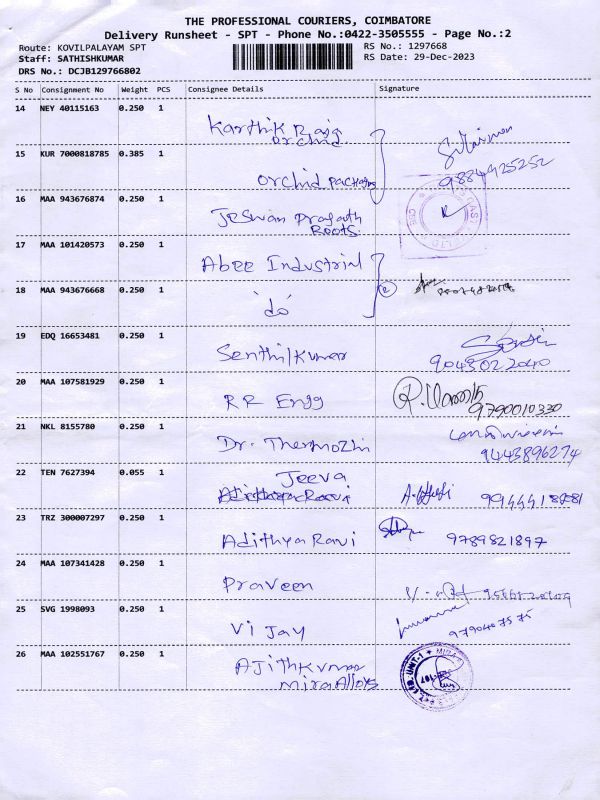 THE PROFESSIONAL COURIERS, COIMBATORE
Delivery Runsheet - SPT - Phone No.:0422-3505555 - Page No.:2
Route: KOVILPALAYAM SPT
RS No.: 1297668
Staff: SATHISHKUMAR
RS Date: 29-Dec-2023
DRS No.: DCJB129766802
S No Consignment No Weight PCS Consignee Details Signature
14 NEY 40115163 0.250 1 Karthik Raja
orchid
15 KUR 7000818785 0.385 1 orchid packaging
9884925252
16 MAA 943676874 0.250 1 Jeswan Prajath
Roots
17 MAA 101420573 0.250 1 Abee Industrial
18 MAA 943676668 0.250 1 'do' 2
19 EDQ 16653481 0.250 1 Senthilkumar
9043022040
20 MAA 107581929 0.250 1 RR Engg 9790010330
21 NKL 8155780 0.250 1 Dr. Thermozhi 9443896274
22 TEN 7627394 0.055 1 Jeeva
23 TRZ 300007297 0.250 1 Adithya Ravi 9789821897
24 MAA 107341428 0.250 1 Praveen
25 SVG 1998093 0.250 1 Vijay
26 MAA 102551767 0.250 1 Ajithkumar
Mira Alloys